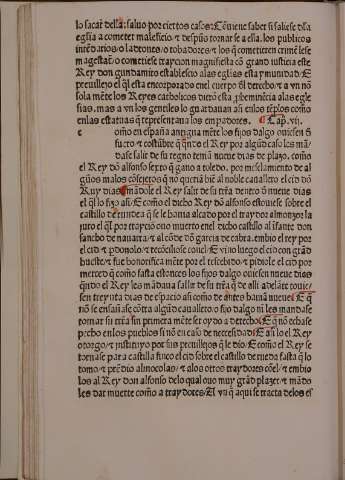 lo sacar della: saluo por ciertos casos: Cõuiene saber si saliese dla
eglia a cometer maleficio / ⁊ despues tornar se a ella. los publicos
incẽdarios / o ladrones / o robadores / ⁊ los que cometieren crimẽ lese
magestatis / o cometiese traycion magnifiesta cõ grand iusticia este
Rey don gundamiro establescio alas eglesias esta ymunidad / E
preuillejo el qual esta encorporado enel cuerpo del derecho / ⁊ a vn nõ
sola mẽte los Reyes catholicos dierõ esta preminẽcia alas egle
sias. mas a vn los gentiles lo guardauan assi enlos tẽplos como
enlas estatuas que representauan los enparadores. Cap. vij.
Como en españa antigua mẽte los fijos dalgo ouiesen
fuero ⁊ costũbre que quãdo el Rey por algũd caso les mã
dase salir de su regno teniã nueue dias de plazo. como
el Rey dõ alfonso sexto que gano a toledo. por mesclamiento de al
gũos malos cõsejeros que no queriã biẽ al noble cauallero el cid dõ
Ruy dias. mãdole el Rey salir de su trã dentro õ nueue dias
el qual lo fizo assi / E como el dicho Rey dõ alfonso estouiese sobre el
castillo de rrueda que se le hauia alcado por el traydor almonfoc la
juro el qual por traycio ouo muerto enel dicho castillo al ifante don
sancho de nauarra / ⁊ al cõde dõ garcia de cabra. embio el rey por
el cid ⁊ pdonolo ⁊ recõciliose conel / E vino luego el cid con grãd
hueste / ⁊ fue honorifica mẽte por el rescebido / ⁊ pidiole el cid por
merced que como fasta estonces los fijos dalgo ouiesen nueue dias
quãdo el Rey les mãdaua sallir de su trã que de alli adelãte ouie /
sen treynta dias de espacio assi como de antes hauiã nueue / E que
nõ se ensañase cõtra algũd cauallero o fijo dalgo ni les mandase
tornar su trã sin primera mẽte ser oydo a derecho / E que nõ echase
pecho en los pueblos si nõ en caso de necesidad / E assi lo el Rey
otorgo / ⁊ instituyo por sus preuillejos que le dio / E como el Rey se
tornase para castilla finco el cid sobre el castillo de rueda fasta que lo
tomo / ⁊ prẽdio almocolas / ⁊ alos otros traydores cõel / ⁊ embio
los al Rey don alfonso delo qual ouo muy grãd plazer / ⁊ mãdo
les dar muerte como a traydores / A vn que aqui se tracta delos el